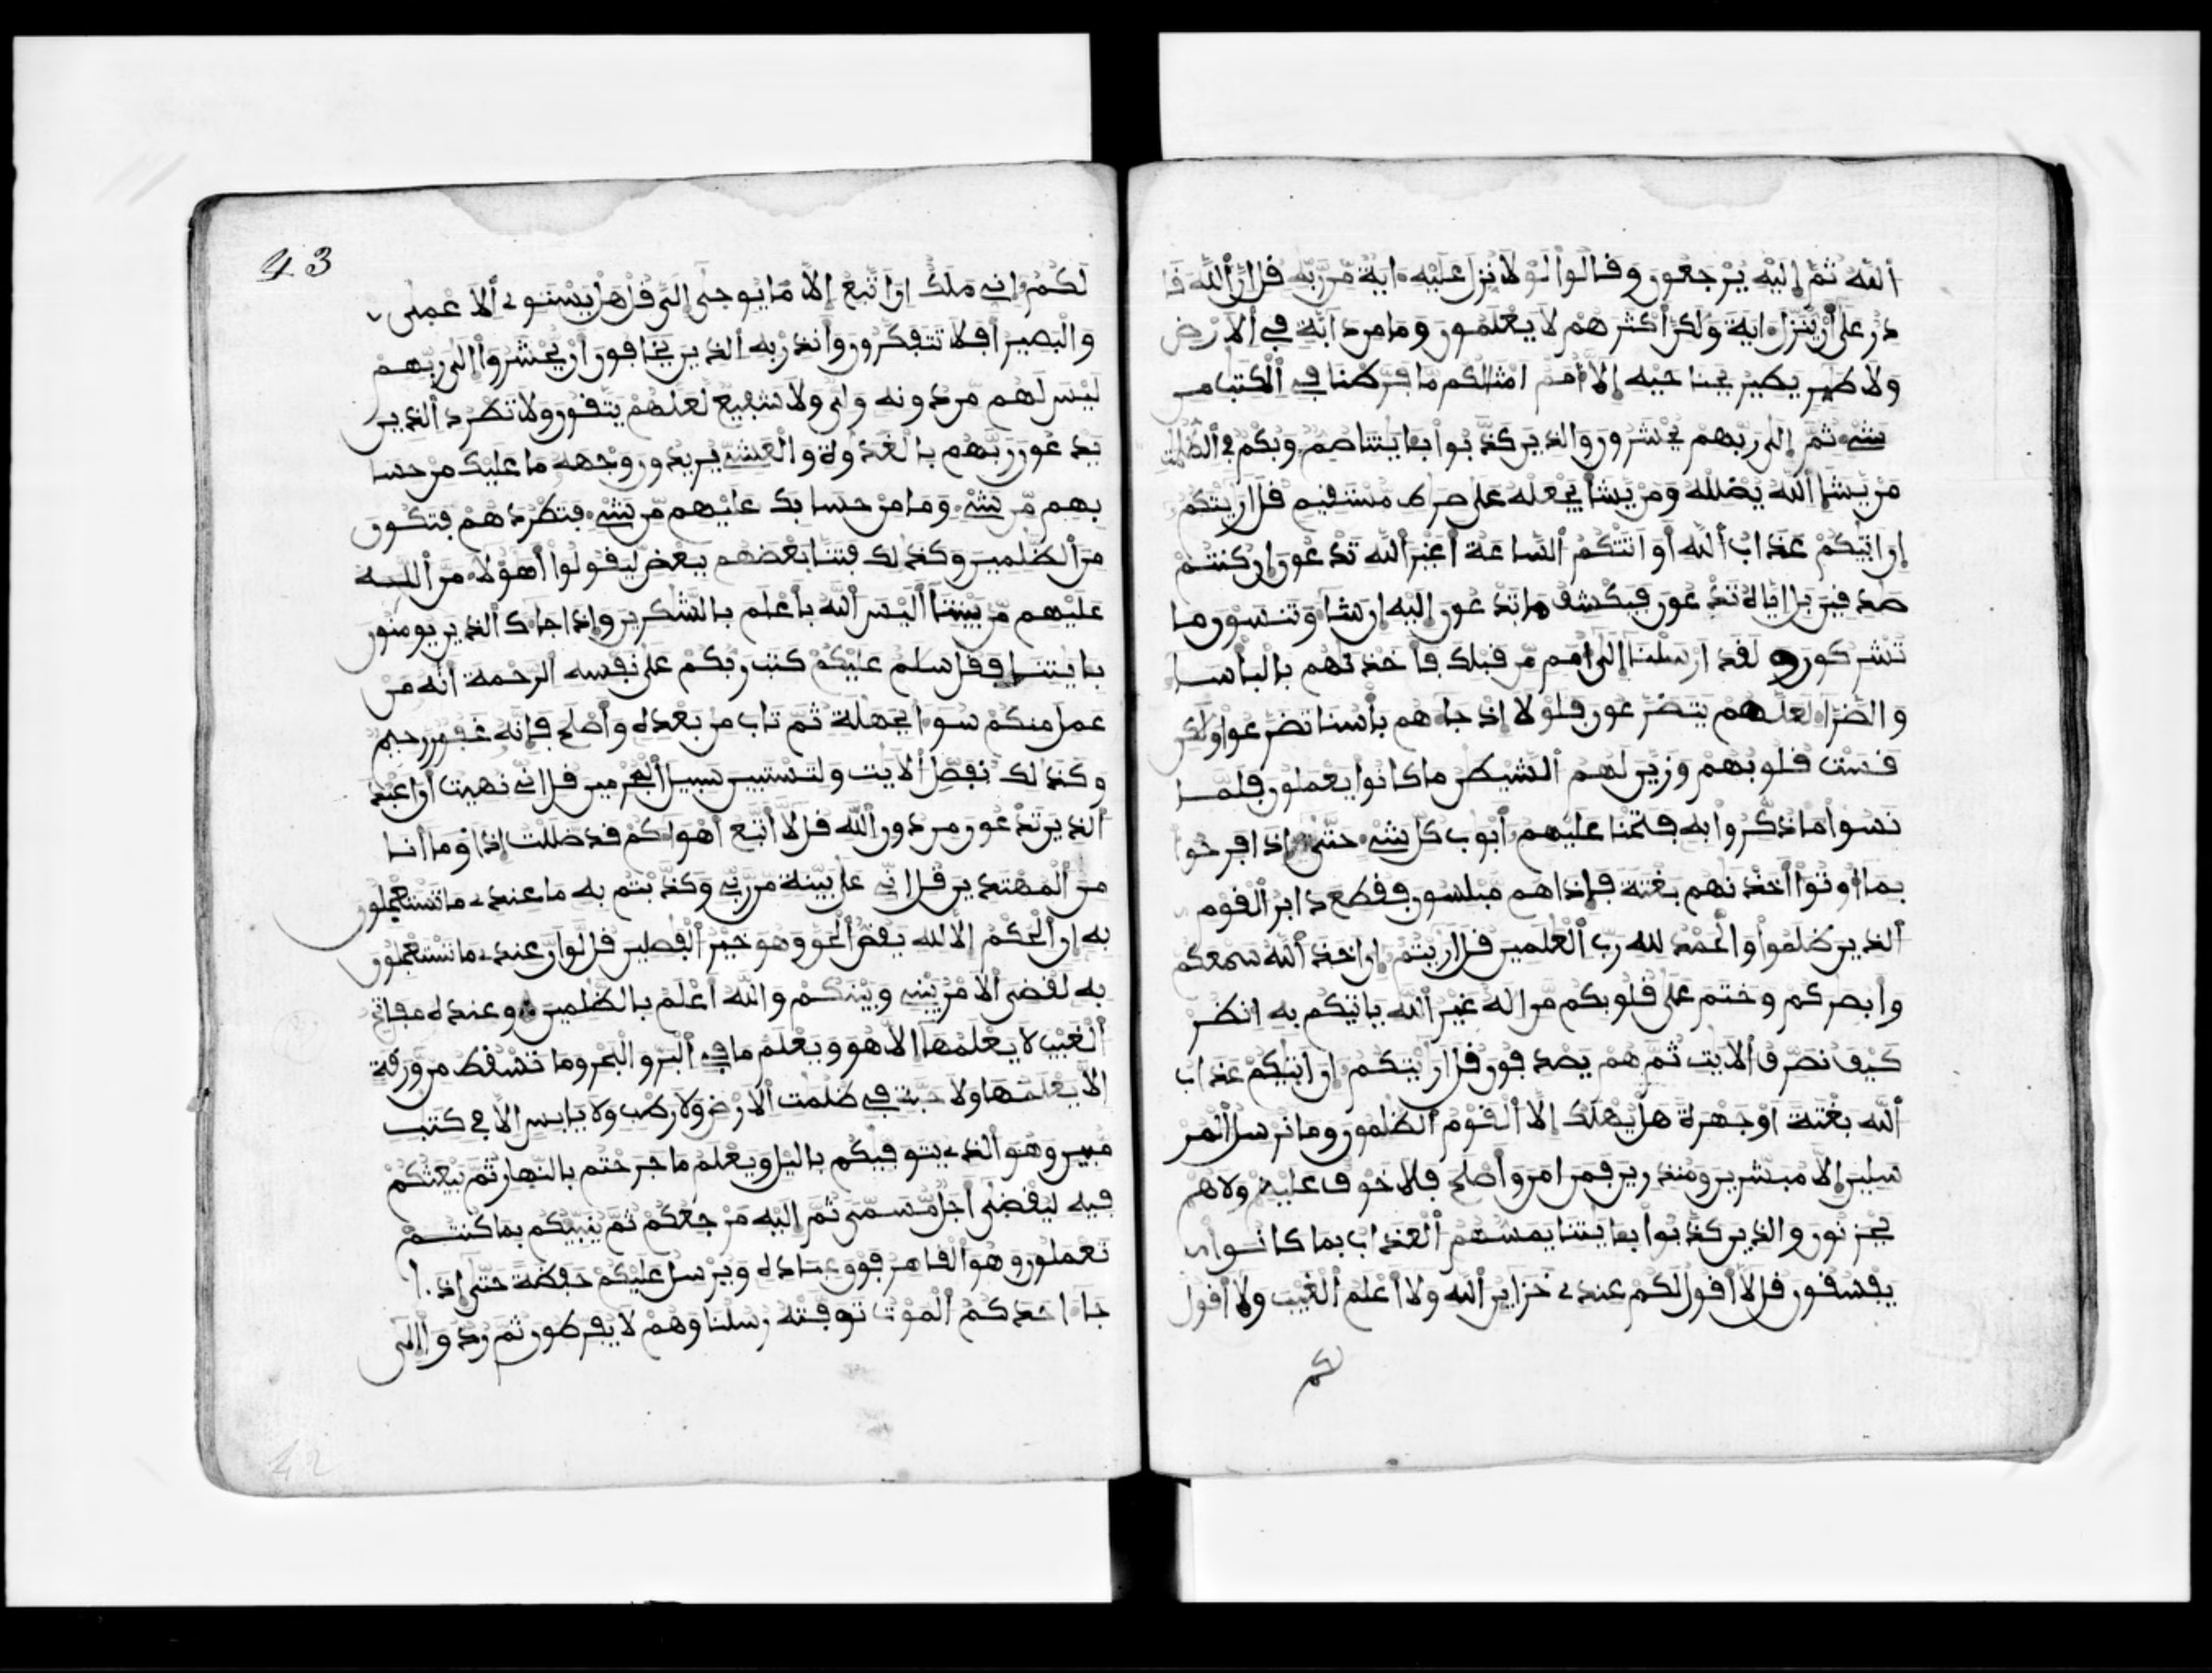 الله ثم إليه يرجعون وقالوا لولا نزل عليه ءاية من ربه قل ان الله قا
در على أن ينزل ءاية ولكن أكثرهم لا يعلمون وما من دابة في الارض
ولا طير يطير بجناحيه إلا أمم امثالكم ما فرطنا في الكتب من
شيء ثم إلى ربهم يحشرون والذين كذبوا بءايتنا صم وبكم في الظلمت
من يشإ الله يضلله ومن يشأ يجعله على صرط مستقيم قل اريتكم
إن اتيكم عذاب الله أو اتتكم الساعة أغير الله تدعون إن كنتم
صدقين بل إياه تدعون فيكشف ما تدعون إليه إن شاء وتنسون ما
تشركون ولقد ارسلنا إلى أمم من قبلك فأخذنهم بالبأسا
والضراء لعلهم يتضرعون فلولا إذ جاءهم بأسنا تضرعوا ولكن
قست قلوبهم وزين لهم الشيطن ما كانوا يعملون فلما
نسوا ما ذكروا به فتحنا عليهم أبوب كل شيء حتى إذا فرحوا
بما أوتوا أخذنهم بغتة فإذا هم مبلسون فقطع دابر القوم
الذين ظلموا والحمد لله رب العلمين قل اريتم إن اخذ الله سمعكم
وأبصركم وختم على قلوبكم من اله غير الله ياتيكم به انظر
كيف نصرف الايت ثم هم يصدفون قل اريتكم إن اتيكم عذاب
الله بغتة أو جهرة هل يهلك إلا القوم الظلمون وما نرسل المر
سلين إلا مبشرين ومنذرين فمن امن وأصلح فلا خوف عليهم ولا هم
يحزنون والذين كذبوا بءايتنا يمسهم العذاب بما كانوا
يفسقون قل لا أقول لكم عندي خزاين الله ولا أعلم الغيب ولا أقول
لكم
43
لكم إني ملك إن اتبع إلا ما يوحى إلي قل هل يستوي الاعمى
والبصير أفلا تتفكرون وأنذر به الذين يخافون أن يحشروا إلى ربهم
ليس لهم من دونه ولي ولا شفيع لعلهم يتقون ولا تطرد الذين
يدعون ربهم بالغدوة والعشي يريدون وجهه ما عليك من حسا
بهم من شيء وما من حسابك عليهم من شيء فتطردهم فتكون
من الظلمين وكذلك فتنا بعضهم ببعض ليقولوا أهؤلاء من الله
عليهم من بيننا أليس الله بأعلم بالشكرين وإذا جاءك الذين يومنون
بايتنا فقل سلم عليكم كتب ربكم على نفسه الرحمة أنه من
عمل منكم سوءا بجهلة ثم تاب من بعده وأصلح فإنه غفور رحيم
وكذلك نفصل الايت ولتستبين سبيل المجرمين قل إني نهيت أن اعبد
الذين تدعون من دون الله قل لا أتبع أهواءكم قد ضللت إذا وما أنا
من المهتدين قل اني على بينة من ربي وكذبتم به ما عندي ما تستعجلون
به إن الحكم إلا لله يقص الحق وهو خير الفصلين قل لو ان عندي ما تستعجلون
به لقضي الامر بيني وبينكم والله أعلم بالظلمين وعنده مفاتح
الغيب لا يعلمها إلا هو ويعلم ما في البر والبحر وما تسقط من ورقة
الا يعلمها ولا حبة في ظلمت الارض ولا رطب ولا يابس إلا في كتب
مبين وهو الذي يتوفيكم باليل ويعلم ما جرحتم بالنهار ثم يبعثكم
فيه ليقضى أجل مسمى ثم إليه مرجعكم ثم ينبيكم بما كنتم
تعملون وهو القاهر فوق عباده ويرسل عليكم حفظة حتى إذا
جاء احدكم الموت توفته رسلنا وهم لا يفرطون ثم ردوا إلى
42